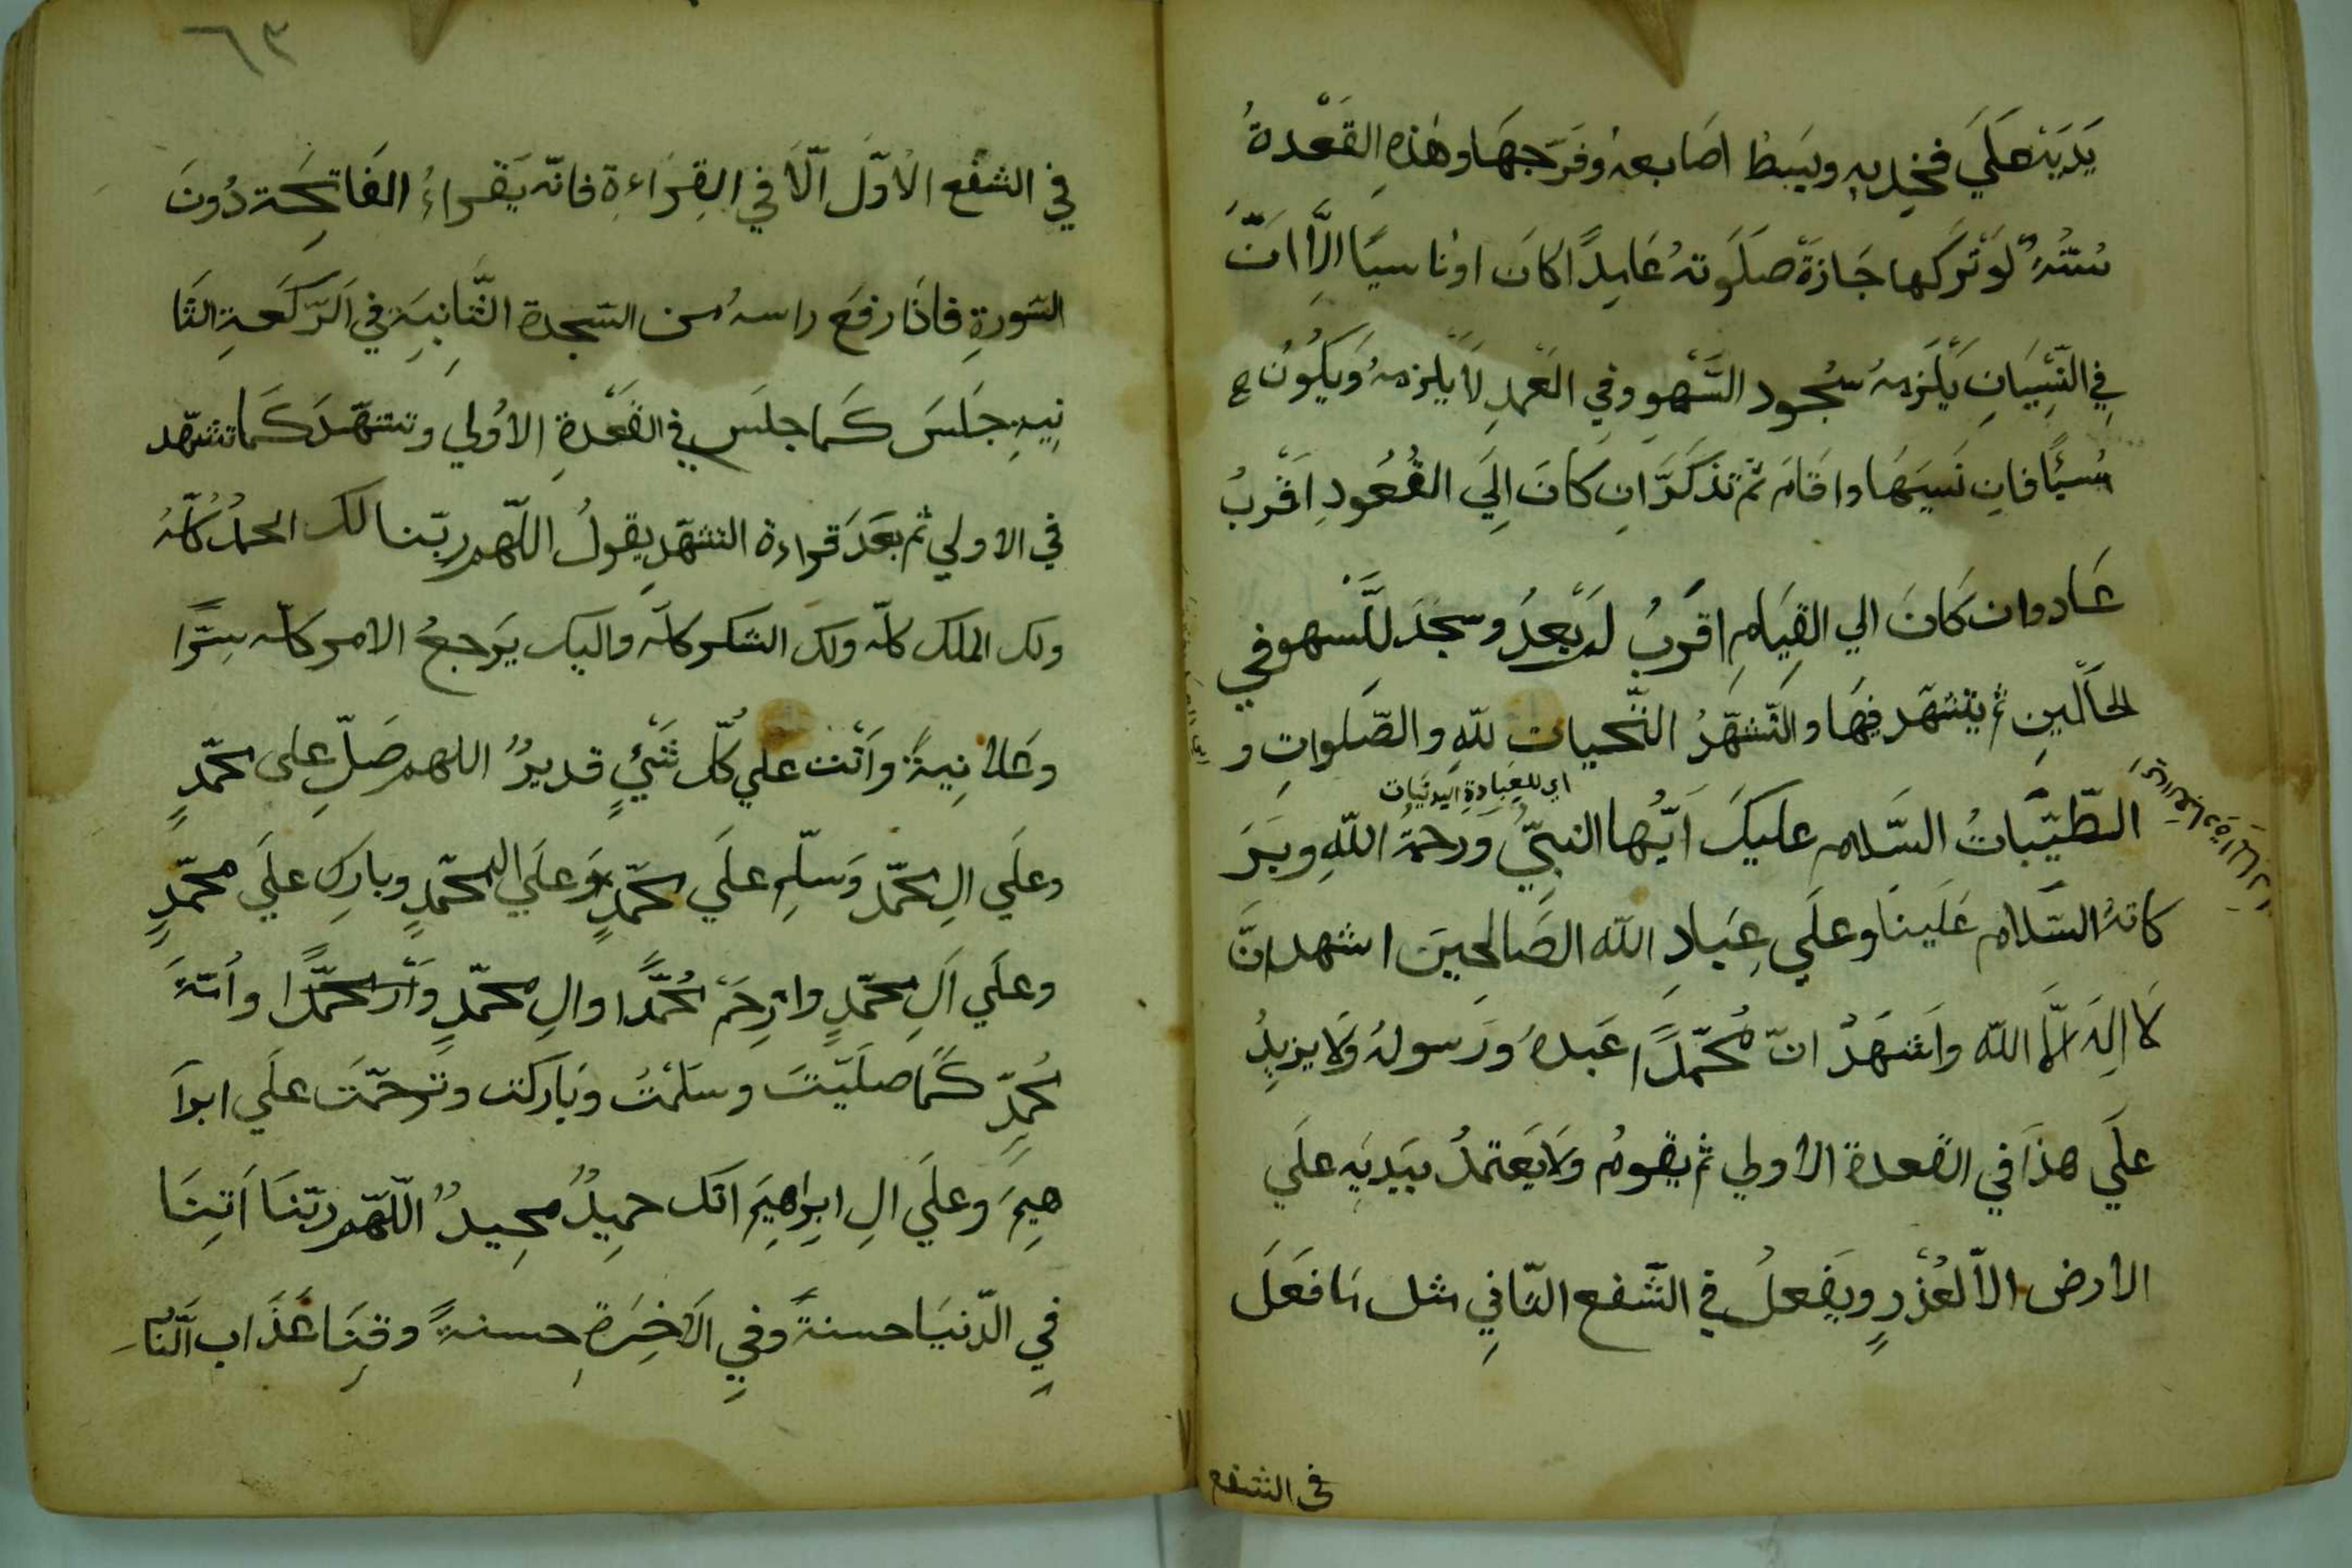 يَدَيْهِ عَلَي فخِديهِ ويَبسط اصَابعهُ وفَرّجهَا وهٰذِهِ القَعْدةُ
سُنّتهٌ لوْ تَرَكها جَازةَ صَلَوتهُ عَامِدًا كانَ اوْناسيًا اِلَّا انّ
فِي النِّسْيَانِ يَلْزمهُ سُجُود السَّهْوِ وفي العَمْدِ لَا يَلزمهُ وَيَكُونُ ح
مُسئًا فانِ نَسِيَهَا واقَامَ ثمّ تذكَرَّ انِ كَانَ اِلَي القُعُودِ اَقْربُ
عَاد وان كَانَ الي القِيَامِ اقرَبُ لم يَعُدُ وسجَدَ للَّسهو في
الحَالَينِ ثم يتشهّد فِيهَا والتّشَهّدُ التّحيات للّهِ والصّلوات و
اي للعِبَادةِ البَدنيَات
الطّيّبَاتُ السّلام عليكَ اَيّها النبِيُّ وَرحمةُ اللّهِ وبَرَ
كاتهُ السّلَام عَلَينَا وعلَي عِبَادِ اللّه الصَالحِينَ اشهد انَّ
لَا اِلهَ الَّا اللّه واَشهَدُ انّ مُحَمّدًا عَبدهُ وَرَسولهُ وَلا يزيدُ
علَي هذَا في القعدة الاولي ثم يقومُ ولَا يَعتمدُ بيَديَهِ علَي
الارض الاّ لعُذْرٍ ويَفعلُ في الشّفع الثّانِي مثل مَا فعَلَ
في الشفع
٦٣
في الشفع الْاَوّل اّلَا في القِرَاءةِ فانّه يَقراءُ الفَاتِحَة دُونَ
السّورةِ فاذَا رفعَ راسهُ من السّجدة الثَّانِيَةِ في اَلرّكَعةِ الثَا
نِيهِ جَلسَ كَما جلسَ في القَعْدةِ الاوُلي وتشهّدَ كَما تشهّد
في الاولي ثم بَعَدَ قراءة التشهّدِ يقولُ اللّهمّ ربّنا لك الحمدُ كلّهُ
ولك الملك كلّه ولك الشكر كلّه واليك يَرجعُ الامر كلّه سِرًّا
وعَلانِيةً واَنْت علي كلّ شَيْءٍ قديرٌ اللهم صَلّ على محمّدٍ
وعلَي الِ محمّد وَسلّم علَي محمّدٍ وَعلَي ال محمّدٍ وبارِك علَي محمّدٍ
وعلَي اَلِ محمّدٍ وارْحَمْ مُحمّدًا والِ محمّدٍ وَأَرْ محمّدًا واُمّتهَ
مُحمّدٍ كَمَا صلَيّتَ وسلمْتُ وبَاركت وترحمّتَ علَي ابراَ
هِيمَ وعلَي الِ ابِراهِيَم انّك حمِيدٌ مجِيدٌ اللّهمّ ربّنَا اَتِنَا
فِي الدّنيَا حسنةً وفي الاَخِرَةِ حسنةً وقِنَا عَذَاب اَلنّارِ